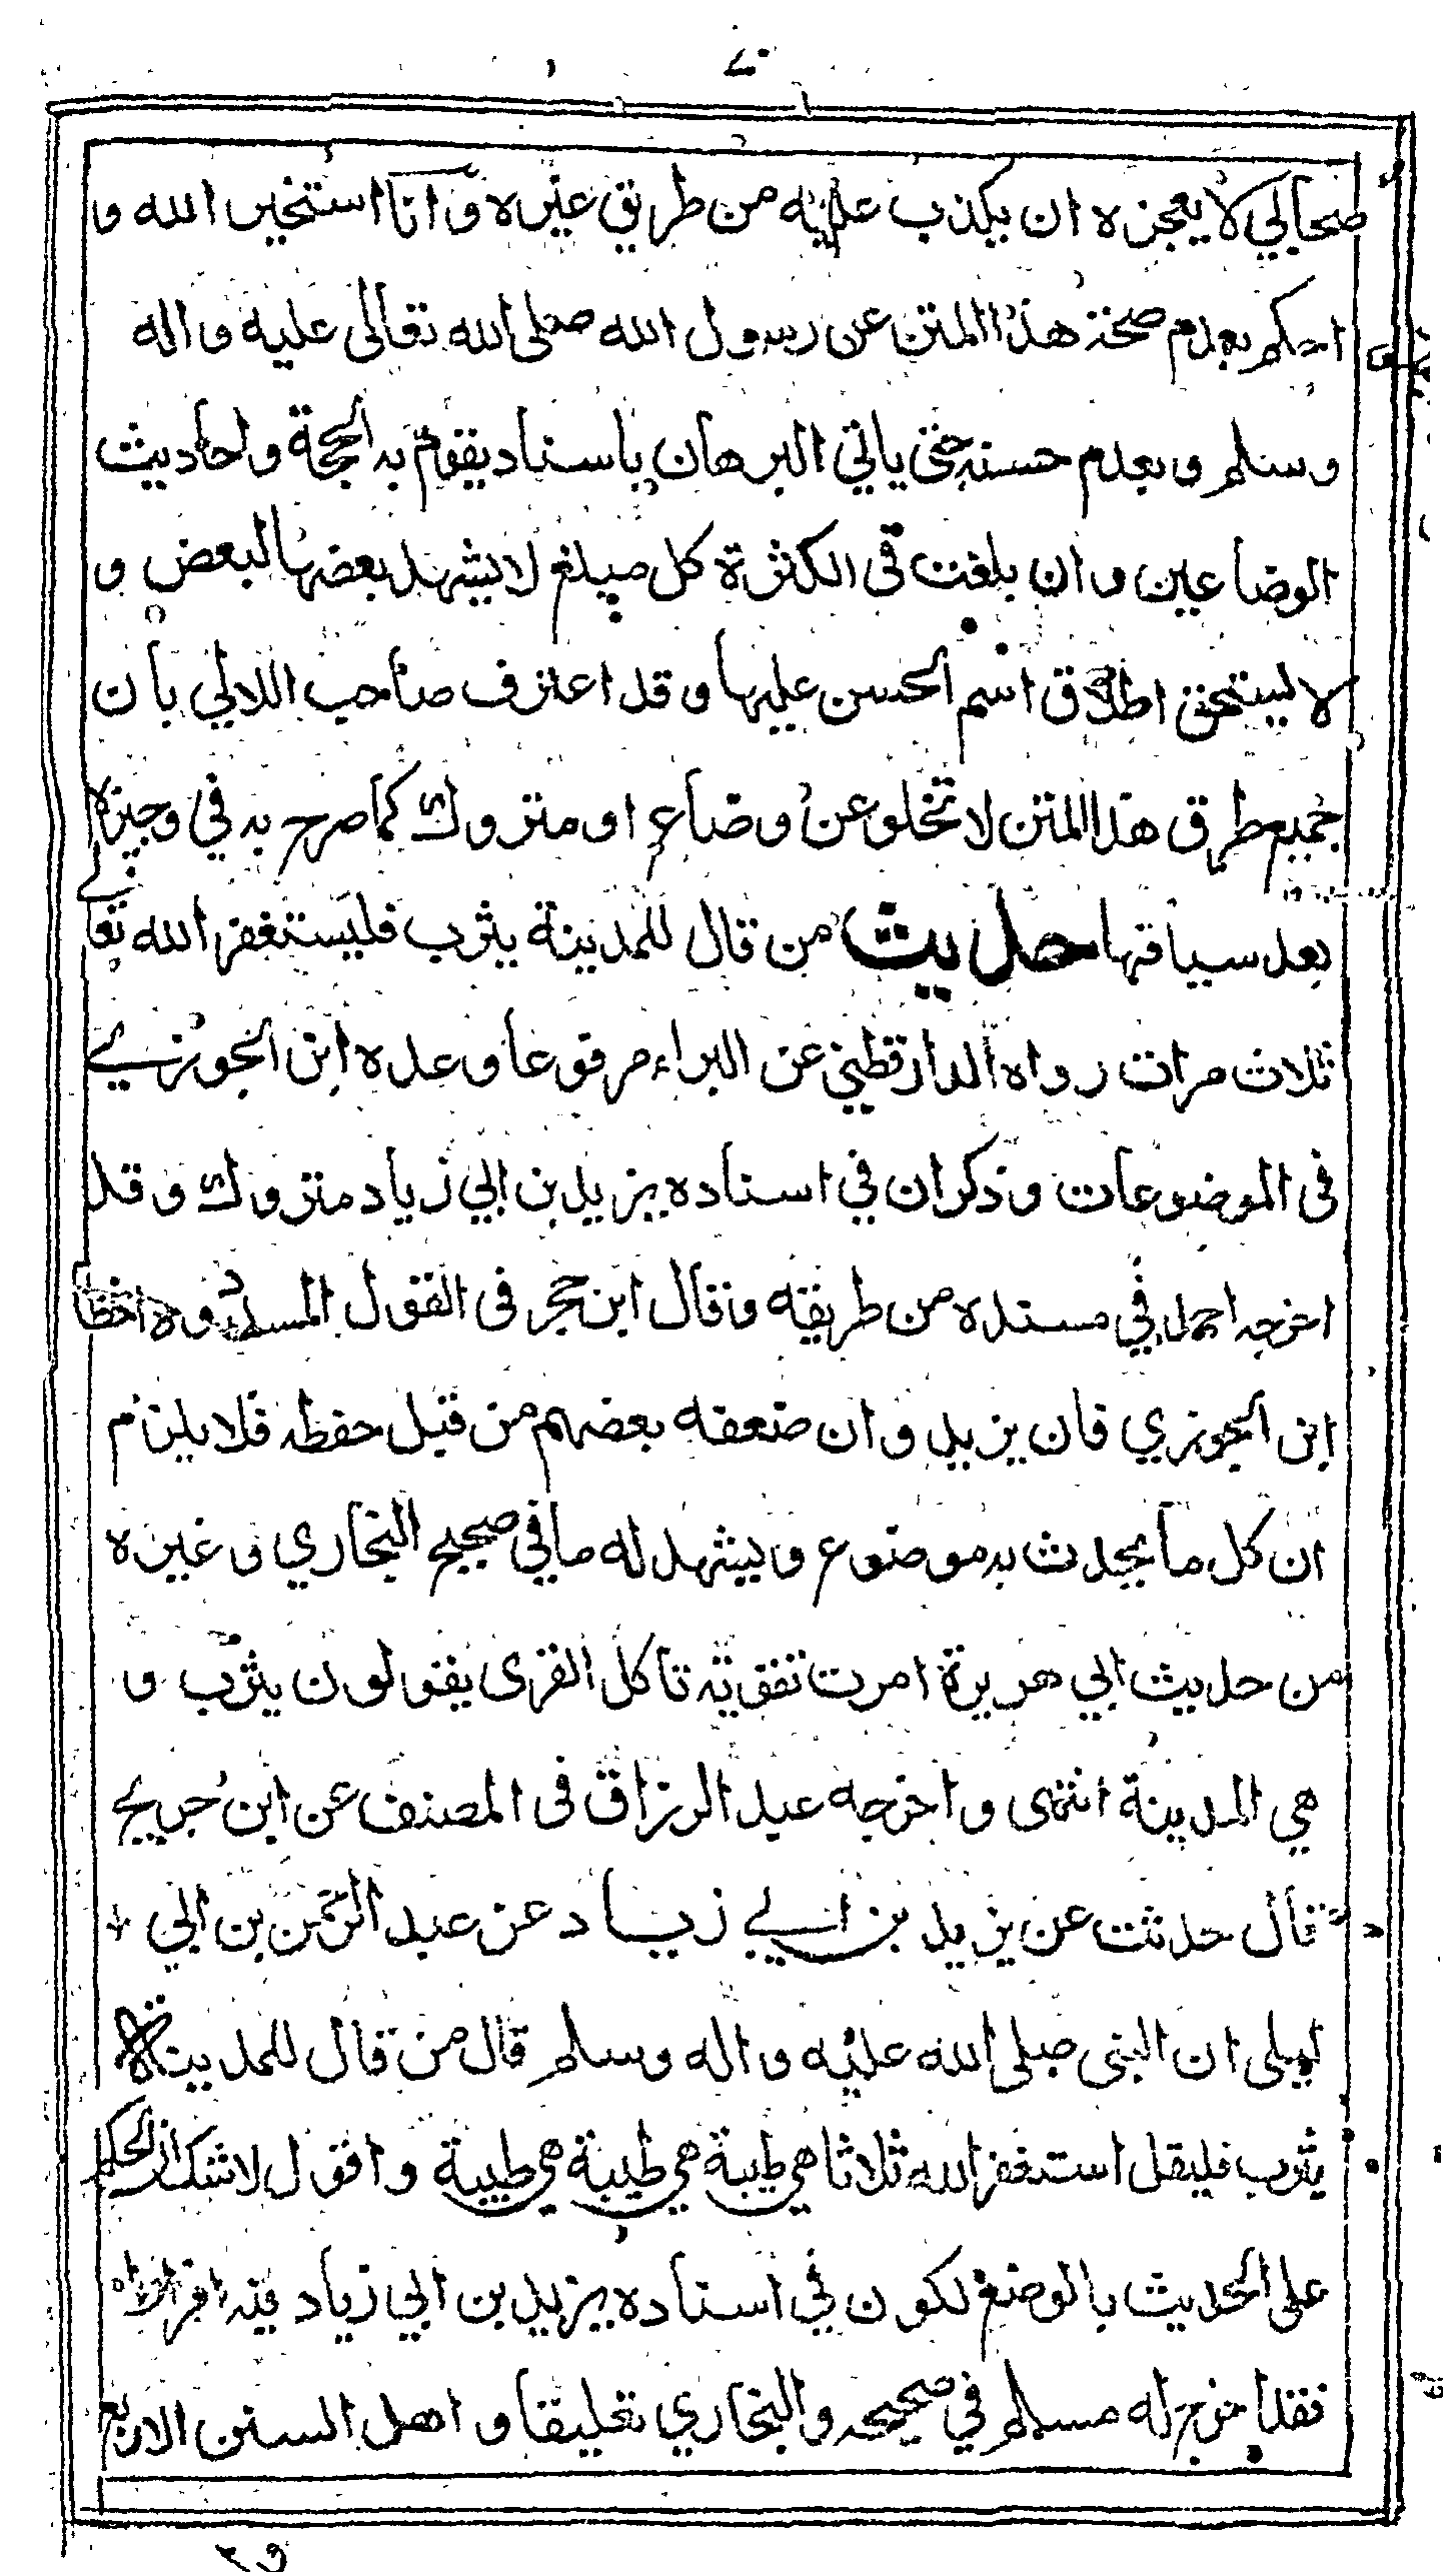 صحابي لا يعجزه ان يكذب عليه من طريق غيره وانا استخير الله و
احكم بعدم صحة هذا المتن عن رسول الله صلى الله تعالى عليه واله
وسلم وبعدم حسنه حتى ياتي البرهان باسناد يقوم به الحجة واحاديث
الوضاعين وان بلغت في الكثرة كل مبلغ لا يشهد بعضها لبعض و
لا يستحق اطلاق اسم الحسن عليها وقد اعترف صاحب اللالي بان
جميع طرق هذا المتن لا تخلو عن وضاع او متروك كما صرح به في وجيزه
بعد سياقها حديث من قال للمدينة يثرب فليستغفر الله تعالى
ثلاث مرات رواه الدارقطني عن البراء مرفوعا وعده ابن الجوزي
في الموضوعات وذكر ان في اسناده يزيد بن ابي زياد متروك وقد
اخرجه احمد في مسنده من طريقه وقال ابن حجر في القول المسدد واخطا
ابن الجوزي فان يزيد وان ضعفه بعضهم من قبل حفظه فلا يلزم
ان كل ما يحدث به موضوع ويشهد له ما في صحيح البخاري وغيره
من حديث ابي هريرة امرت بقرية تاكل القرى يقولون يثرب و
هي المدينة انتهى واخرجه عبد الرزاق في المصنف عن ابن جريج
قال حدثت عن يزيد بن ابي زياد عن عبد الرحمن بن ابي
ليلى ان النبي صلى الله عليه واله وسلم قال من قال للمدينة
يثرب فليقل استغفر الله ثلاثا هي طيبة هي طيبة هي طيبة واقول لا شك ان الحكم
على الحديث بالوضع لكون في اسناده يزيد بن ابي زياد فيه افراط
فقد اخرج له مسلم في صحيحه والبخاري تعليقا واهل السنن الاربع